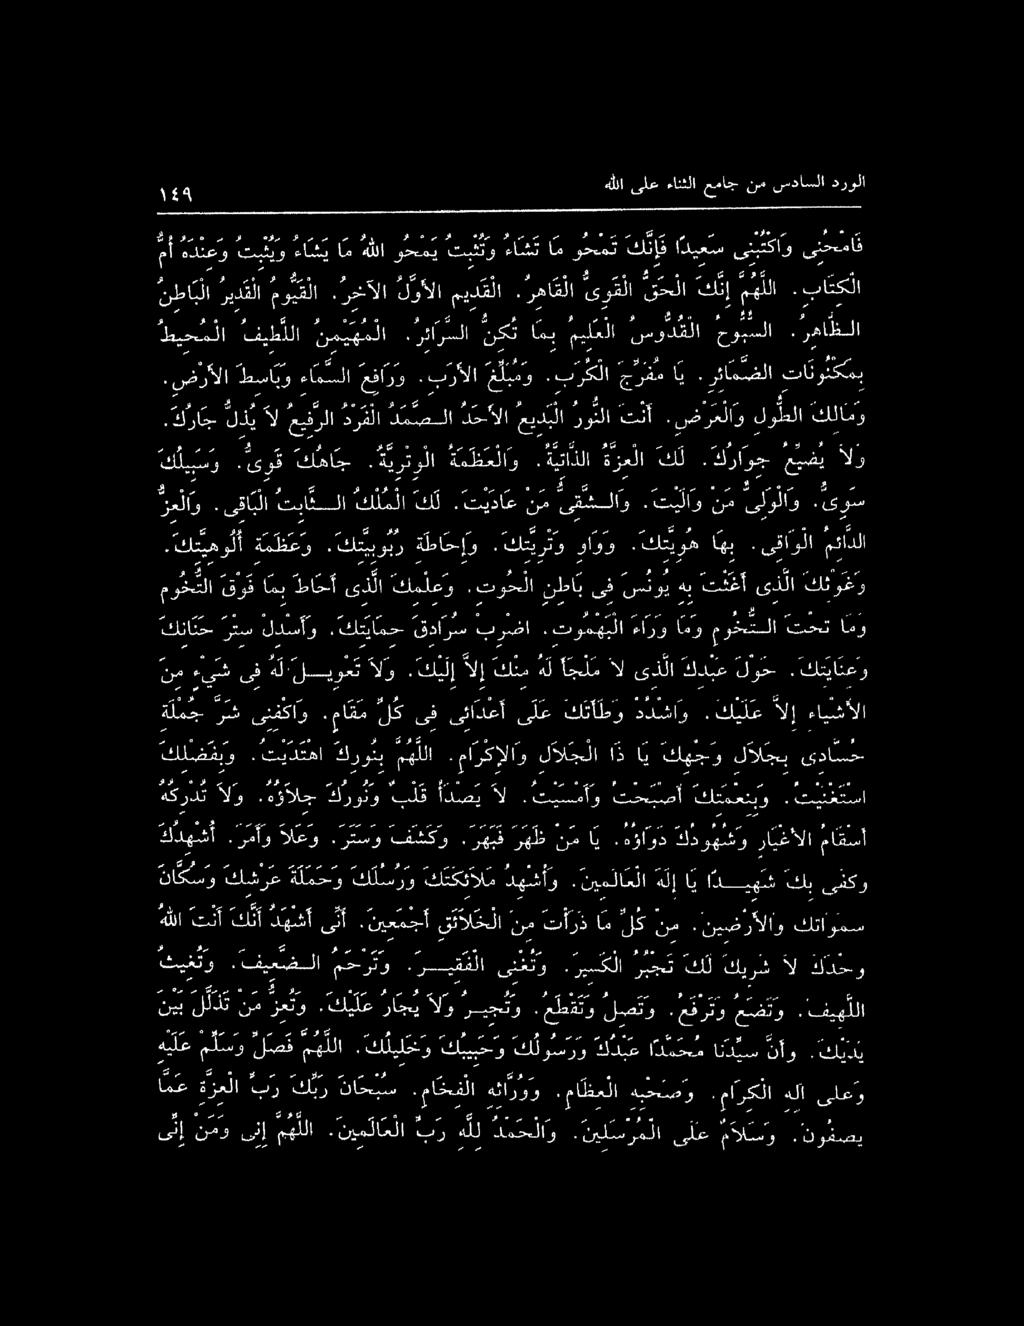 الورد السادس من جامع الثناء على الله ١٤٩
فَامْحُنِى وَاكْتُبْنِى سَعِيدًا فَإِنَّكَ تَمْحُو مَا تَشَاءُ وَتُثْبِتُ يَمْحُو اللهُ مَا يَشَاءُ وَيُثْبِتُ وَعِنْدَهُ أُمُّ
الْكِتَابِ. اللَّهُمَّ إِنَّكَ الْحَقُّ الْقَوِىُّ الْقَاهِرُ. الْقَدِيمِ الأَوَّلُ الآخِرُ. الْقَيُّومُ الْقَدِيرُ الْبَاطِنُ
الـظَّاهِرُ. السُّبُّوحُ الْقُدُّوسُ الْعَلِيمُ بِمَا تُكِنُّ السَّرَائِرُ. الْمُهَيْمِنُ اللَّطِيفُ الْمُحِيطُ
بِمَكْنُونَاتِ الضَّمَائِرِ. يَا مُفَرِّجَ الْكُرَبِ. وَمُبَلِّغَ الأَرَبِ. وَرَافِعَ السَّمَاءِ وَبَاسِطَ الأَرْضِ.
وَمَالِكَ الطُّولِ وَالْعَرْضِ. أَنْتَ النُّورُ الْبَدِيعُ الأَحَدُ الـصَّمَدُ الْفَرْدُ الرَّفِيعُ لاَ يُذَلُّ جَارُكَ.
وَلاَ يُضَيَّعُ جِوَارُكَ. لَكَ الْعِزَّةُ الذَّاتِيَّةُ. وَالْعَظَمَةُ الْوِتْرِيَّةُ. جَاهُكَ قَوِىٌّ. وَسَبِيلُكَ
سَوِىٌّ. وَالْوَلِىُّ مَنْ وَالَيْتَ. وَالـشَّقِىُّ مَنْ عَادَيْتَ. لَكَ الْمُلْكُ الـــثَّابِتُ الْبَاقِى. وَالْعِزُّ
الدَّائِمُ الْوَاقِى. بِهَا هُوِيَّتِكَ. وَوَاوِ وَتْرِيَّتِكَ. وَإِحَاطَةِ رُبُوبِيَّتِكَ. وَعَظَمَةِ أُلُوهِيَّتِكَ.
وَغَوْثِكَ الَّذِى أَغَثْتَ بِهِ يُونُسَ فِى بَاطِنِ الْحُوتِ. وَعِلْمِكَ الَّذِى أَحَاطَ بِمَا فَوْقَ التُّخُومِ
وَمَا تَحْتَ الـتُّخُومِ وَمَا وَرَاءَ الْبَهْمُوتِ. اضْرِبْ سُرَادِقَ حِمَايَتِكَ. وَأَسْدِلْ سِتْرَ حَنَانِكَ
وَعِنَايَتِكَ. حَوْلَ عَبْدِكَ الَّذِى لاَ مَلْجَأَ لَهُ مِنْكَ إِلاَّ إِلَيْكَ. وَلاَ تَعْوِيـــلَ لَهُ فِى شَىْءٍ مِنَ
الأَشْيَاءِ إِلاَّ عَلَيْكَ. وَاشْدُدْ وَطَأَتَكَ عَلَى أَعْدَائِى فِى كُلِّ مَقَامٍ. وَاكْفِنِى شَرَّ جُمْلَةِ
حُسَّادِى بِجَلاَلِ وَجْهِكَ يَا ذَا الْجَلاَلِ وَالإِكْرَامِ. اللَّهُمَّ بِنُورِكَ اهْتَدَيْتُ. وَبِفَضْلِكَ
اسْتَغْنَيْتُ. وَبِنِعْمَتِكَ أَصْبَحْتُ وَأَمْسَيْتُ. لاَ يَصْدَأُ قَلْبٌ وَنُورُكَ جِلاَؤُهُ. وَلاَ تُدْرِكُهُ
أَسْقَامُ الأَغْيَارِ وَشُهُودُكَ دَوَاؤُهُ. يَا مَنْ ظَهَرَ فَبَهَرَ. وَكَشَفَ وَسَتَرَ. وَعَلاَ وَأَمَرَ. أُشْهِدُكَ
وَكَفَى بِكَ شَهِيـــدًا يَا إِلَهَ الْعَالَمِينَ. وَأُشْهِدُ مَلاَئِكَتَكَ وَرُسُلَكَ وَحَمَلَةَ عَرْشِكَ وَسُكَّانَ
سَمَوَاتِكَ وَالأَرْضِينَ. مِنْ كُلِّ مَا ذَرَأْتَ مِنَ الْخَلاَئِقِ أَجْمَعِينَ. أَنِّى أَشْهَدُ أَنَّكَ أَنْتَ اللهُ
وَحْدَكَ لاَ شَرِيكَ لَكَ تَجْبُرُ الْكَسِيرَ. وَتُغْنِى الْفَقِيـــرَ. وَتَرْحَمُ الـضَّعِيفَ. وَتُغِيثُ
اللَّهِيفَ. وَتَضَعُ وَتَرْفَعُ. وَتَصِلُ وَتَقْطَعُ. وَتُجِيـرُ وَلاَ يُجَارُ عَلَيْكَ. وَتُعِزُّ مَنْ تَذَلَّلَ بَيْنَ
يَدَيْكَ. وَأَنَّ سَيِّدَنَا مُحَمَّدًا عَبْدُكَ وَرَسُولُكَ وَحَبِيبُكَ وَخَلِيلُكَ. اللَّهُمَّ فَصَلِّ وَسَلِّمْ عَلَيْهِ
وَعَلَى آلِهِ الْكِرَامِ. وَصَحْبِهِ الْعِظَامِ. وَوُرَّاثِهِ الْفِخَامِ. سُبْحَانَ رَبِّكَ رَبِّ الْعِزَّةِ عَمَّا
يَصِفُونَ. وَسَلاَمٌ عَلَى الْمُرْسَلِينَ. وَالْحَمْدُ لِلَّهِ رَبِّ الْعَالَمِينَ. اللَّهُمَّ إِنِّى وَمَنْ إِنِّى